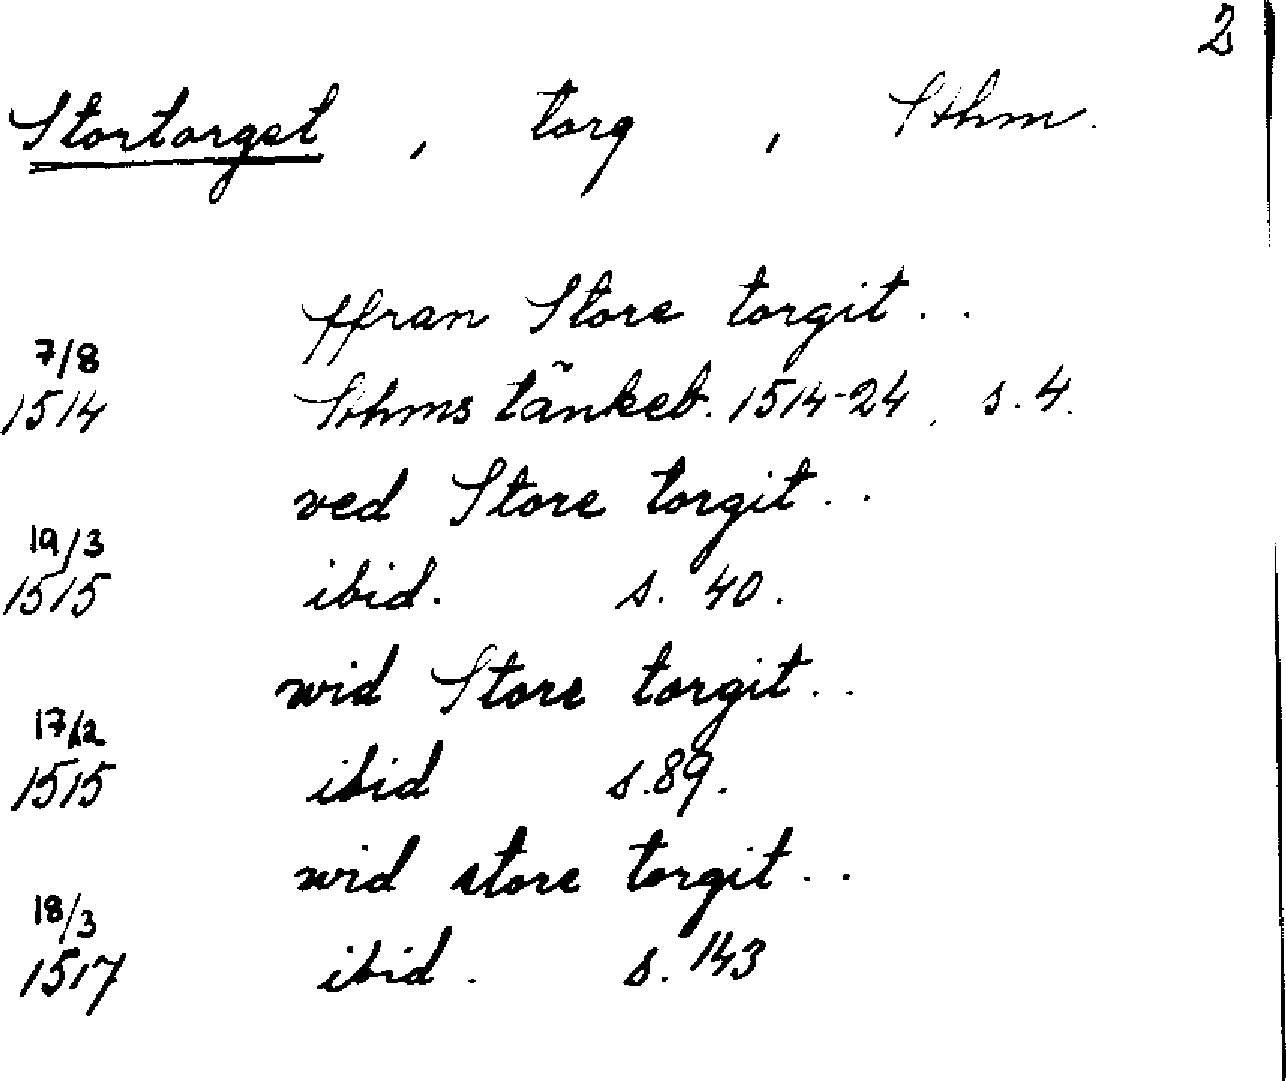 2
Stortorget, torg, Sthm.
ffran Store torgit..
7/8
1514 Sthms tänkeb. 1514-24, s. 4.
ved Store torgit..
19/3
1515 ibid. s. 40.
wid Store torgit..
17/12
1515 ibid s. 89.
wid store torgit..
18/3
1517 ibid. s. 143